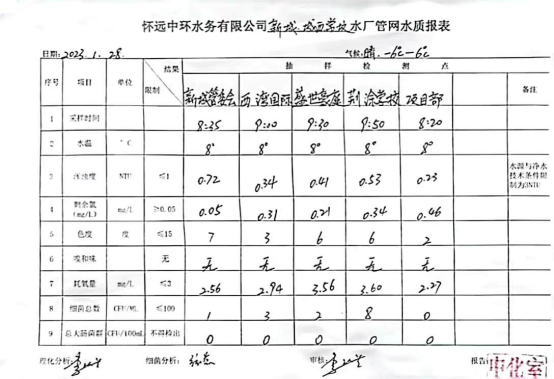 怀远中环水务有限公司新城、城西学校水厂管网水质报表
日期:2023.1.28 气候:晴.-6℃-6℃
序号 项目 单位 结果 限制 抽样检测点 备注
新城管委会 西湾国际 盛世豪庭 荆涂学校 项目部
1 采样时间 8:35 9:00 9:30 9:50 8:20
2 水温 °C 8° 8° 8° 8° 8°
3 浑浊度 NTU ≤1 0.72 0.34 0.41 0.53 0.23 水源与净水技术条件限制为3NTU
4 剩余氯(mg/L) mg/L ≥0.05 0.05 0.31 0.21 0.34 0.46
5 色度 度 ≤15 7 3 6 6 2
6 嗅和味 无 无 无 无 无 无
7 耗氧量 mg/L ≤3 2.56 2.94 3.56 3.60 2.27
8 细菌总数 CFU/ML ≤100 1 3 2 8 0
9 总大肠菌群 CFU/100mL 不得检出 0 0 0 0 0
理化分析: 细菌分析: 审核: 报告:
中化室